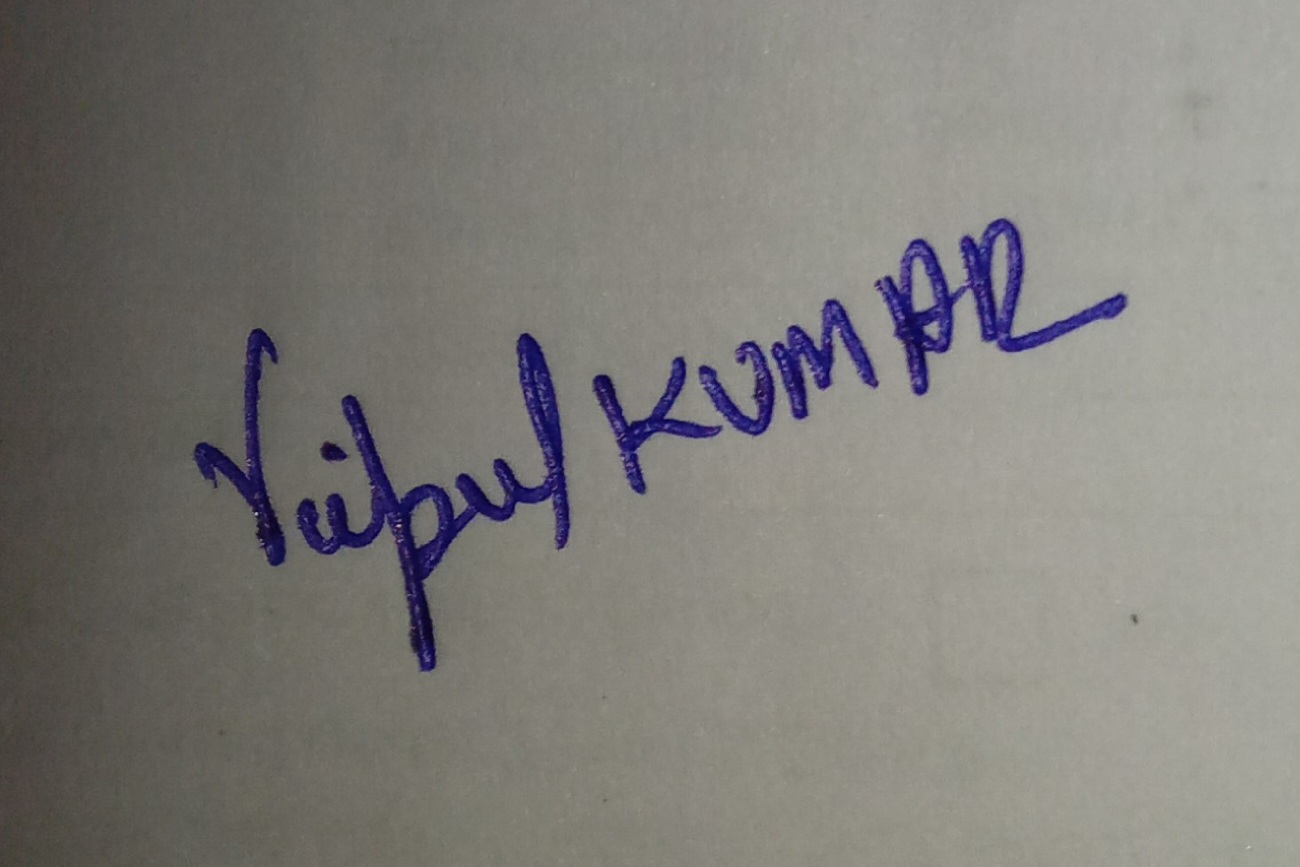 Vipul KUMAR